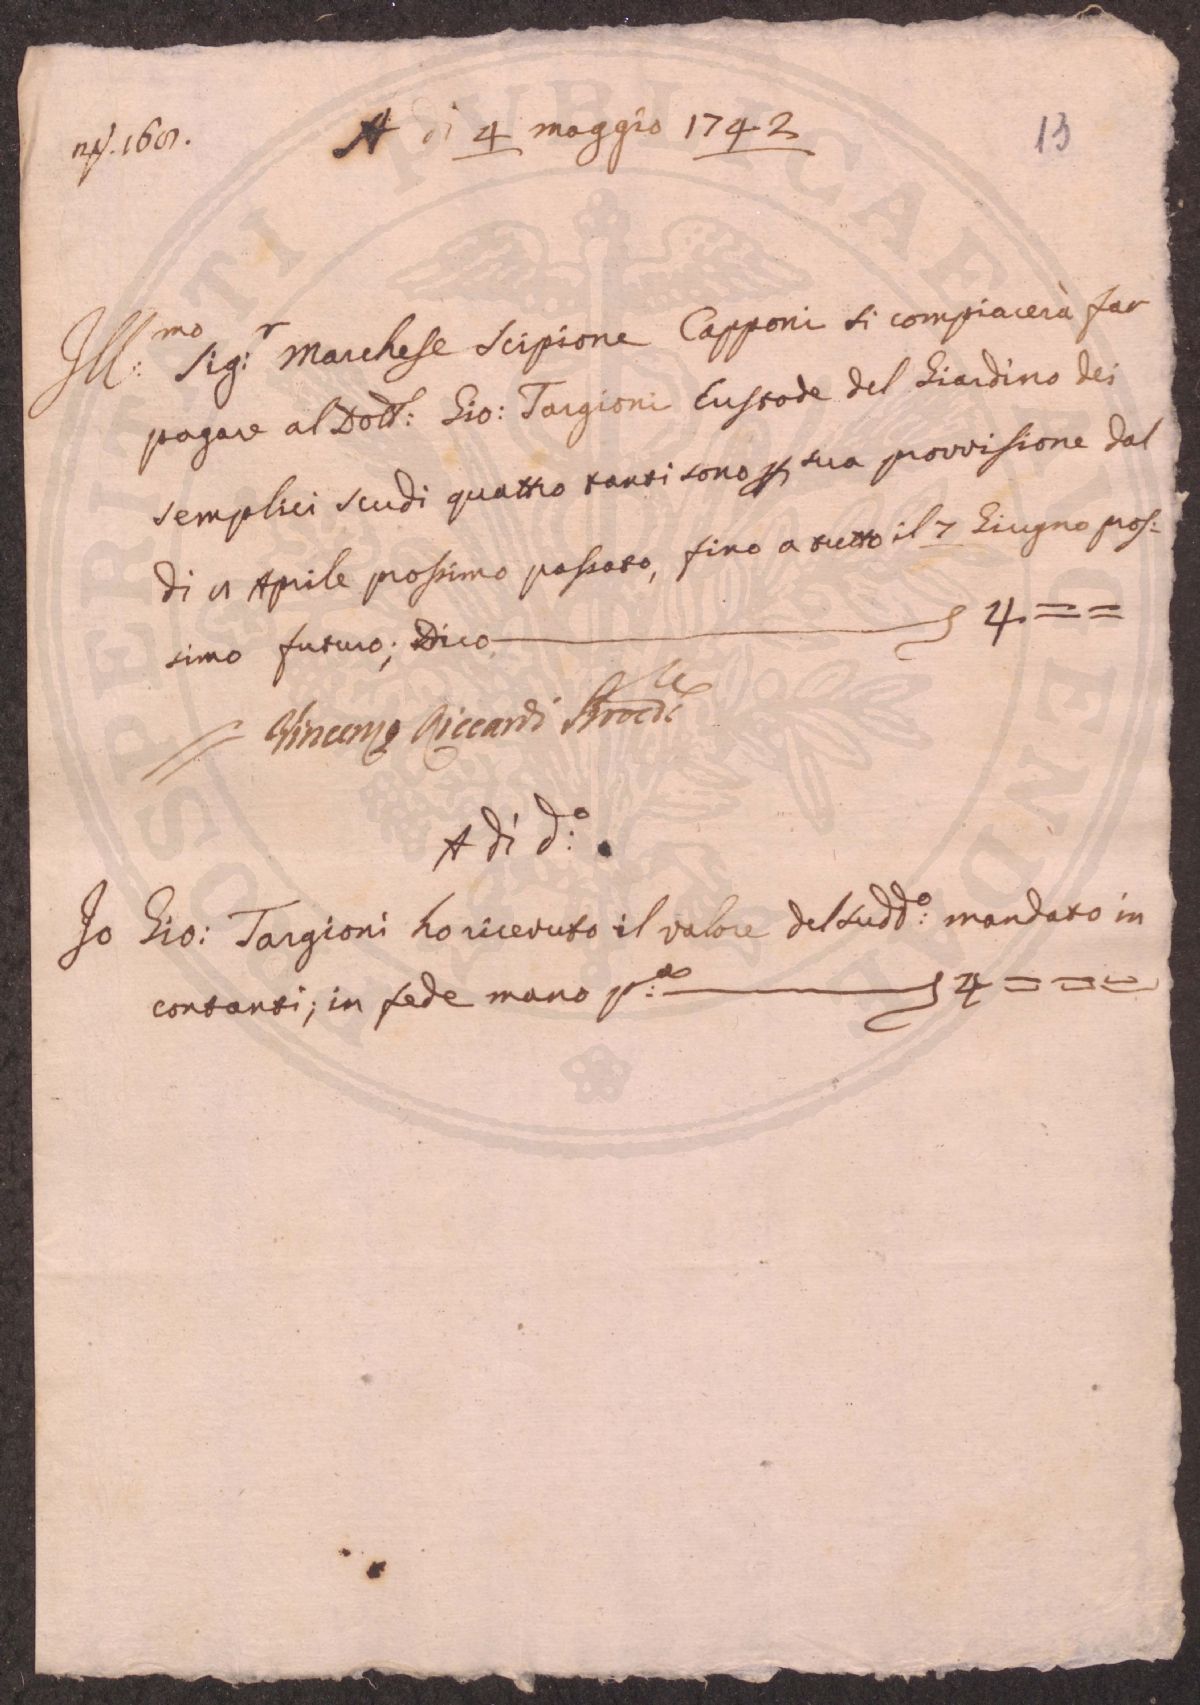 A di 4 maggio 1742
13
Ill:mo Sig:r Marchese Scipione Capponi si compiacerà far
pagare al Dott: Gio: Targioni Custode del Giardino dei
semplici scudi quattro tanti sono p sua provvisione dal
di Aprile prossimo passato, fino a tutto il 7 Giugno pros:
simo futuro; Dico 4 = =
Vincenzo Riccardi
A di d:o
Io Gio: Targioni ho ricevuto il valore del sudd:o mandato in
contanti; in fede mano p:a 4 = = =